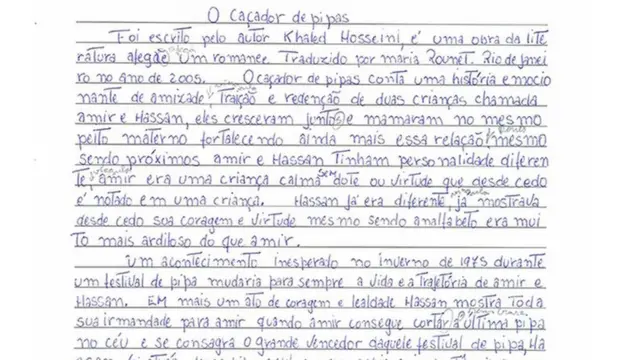 O Caçador de pipas
Foi escrito pelo autor Khaled Hosseini, é uma obra da lite
ratura afegãe um romance. Traduzido por maria Rounet. Rio de janei
ro no ano de 2005. O caçador de pipas conta uma história emocio
nante de amixade, Traição e redenção de duas crianças chamada
amir e Hassan, eles cresceram juntos e mamaram no mesmo
peito materno fortalecendo ainda mais essa relação, mesmo
sendo próximos amir e Hassan Tinham personalidade diferen
te, amir era uma criança calma sem dote ou virtude que desde cedo
é notado em uma criança. Hassan já era diferente, já mostrava
desde cedo sua coragem e virtude mesmo sendo analfabeto era mui
to mais ardiloso do que amir.
um acontecimento inesperado no inverno de 1975 durante
um festival de pipa mudaria para sempre a vida e a trajetória de amir e
Hassan. Em mais um ato de coragem e lealdade Hassan mostra toda
sua irmandade para amir quando amir consegue cortar a última pipa
no céu e se consagra o grande vencedor daquele festival de pipa, Há